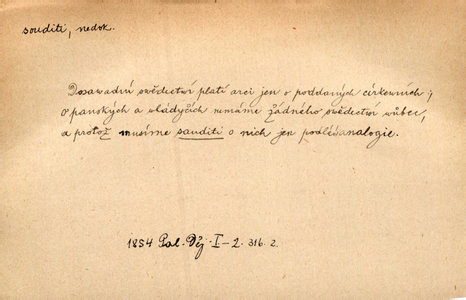 souditi, nedok.
Dosavadní svědectví platí arci jen o poddaných církevních;
o panských a vládyčích nemáme žádného svědectví vůbec,
a protož musíme souditi o nich jen podlé analogie.
1854 Pal. Děj. I–2. 316. 2.